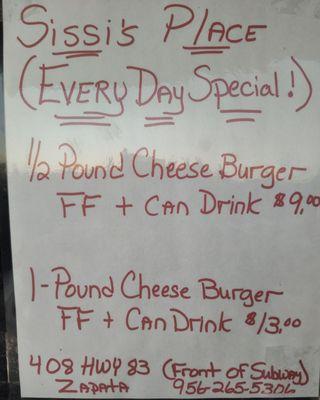 Sissi's Place
(Every Day Special!)
1/2 Pound Cheese Burger
FF + Can Drink $9.00
1-Pound Cheese Burger
FF + Can Drink $13.00
408 HWY 83 (Front of Subway)
Zapata 956-265-5306